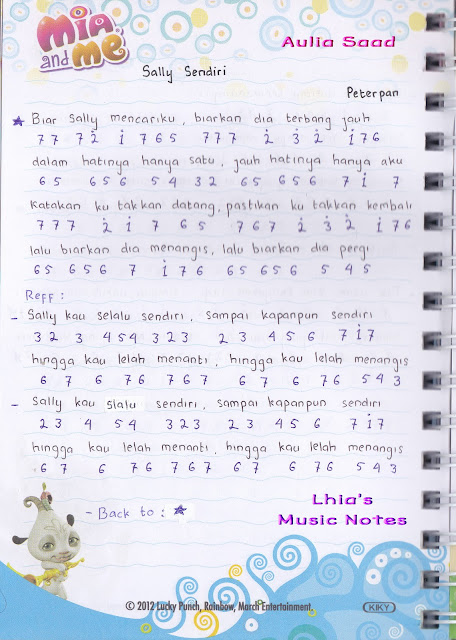 Mia and me
Aulia Saad
Sally Sendiri
Peterpan
★ Biar Sally mencariku, biarkan dia terbang jauh
7 7 7 2̇ 1̇ 7 6 5 7 7 7 2̇ 3̇ 2̇ 1̇ 7 6
dalam hatinya hanya satu, jauh hatinya hanya aku
6 5 6 5 6 5 4 3 2 6 5 6 5 6 7 1̇ 7
Katakan ku takkan datang, pastikan ku takkan kembali
7 7 7 2̇ 1̇ 7 6 5 7 6 7 2̇ 3̇ 2̇ 1̇ 7 6
lalu biarkan dia menangis, lalu biarkan dia pergi
6 5 6 5 6 7 1̇ 7 6 6 5 6 5 6 5 4 5
Reff :
- Sally kau selalu sendiri, sampai kapanpun sendiri
3 2 3 4 5 4 3 2 3 2 3 4 5 6 7 1̇ 7
hingga kau lelah menanti, hingga kau lelah menangis
6 7 6 7 6 7 6 7 6 7 6 7 6 5 4 3
- Sally kau slalu sendiri, sampai kapanpun sendiri
2 3 4 5 4 3 2 3 2 3 4 5 6 7 1̇ 7
hingga kau lelah menanti, hingga kau lelah menangis
6 7 6 7 6 7 6 7 6 7 6 7 6 5 4 3
- Back to : ★
Lhia's
Music Notes
© 2012 Lucky Punch, Rainbow, March Entertainment.
KIKY